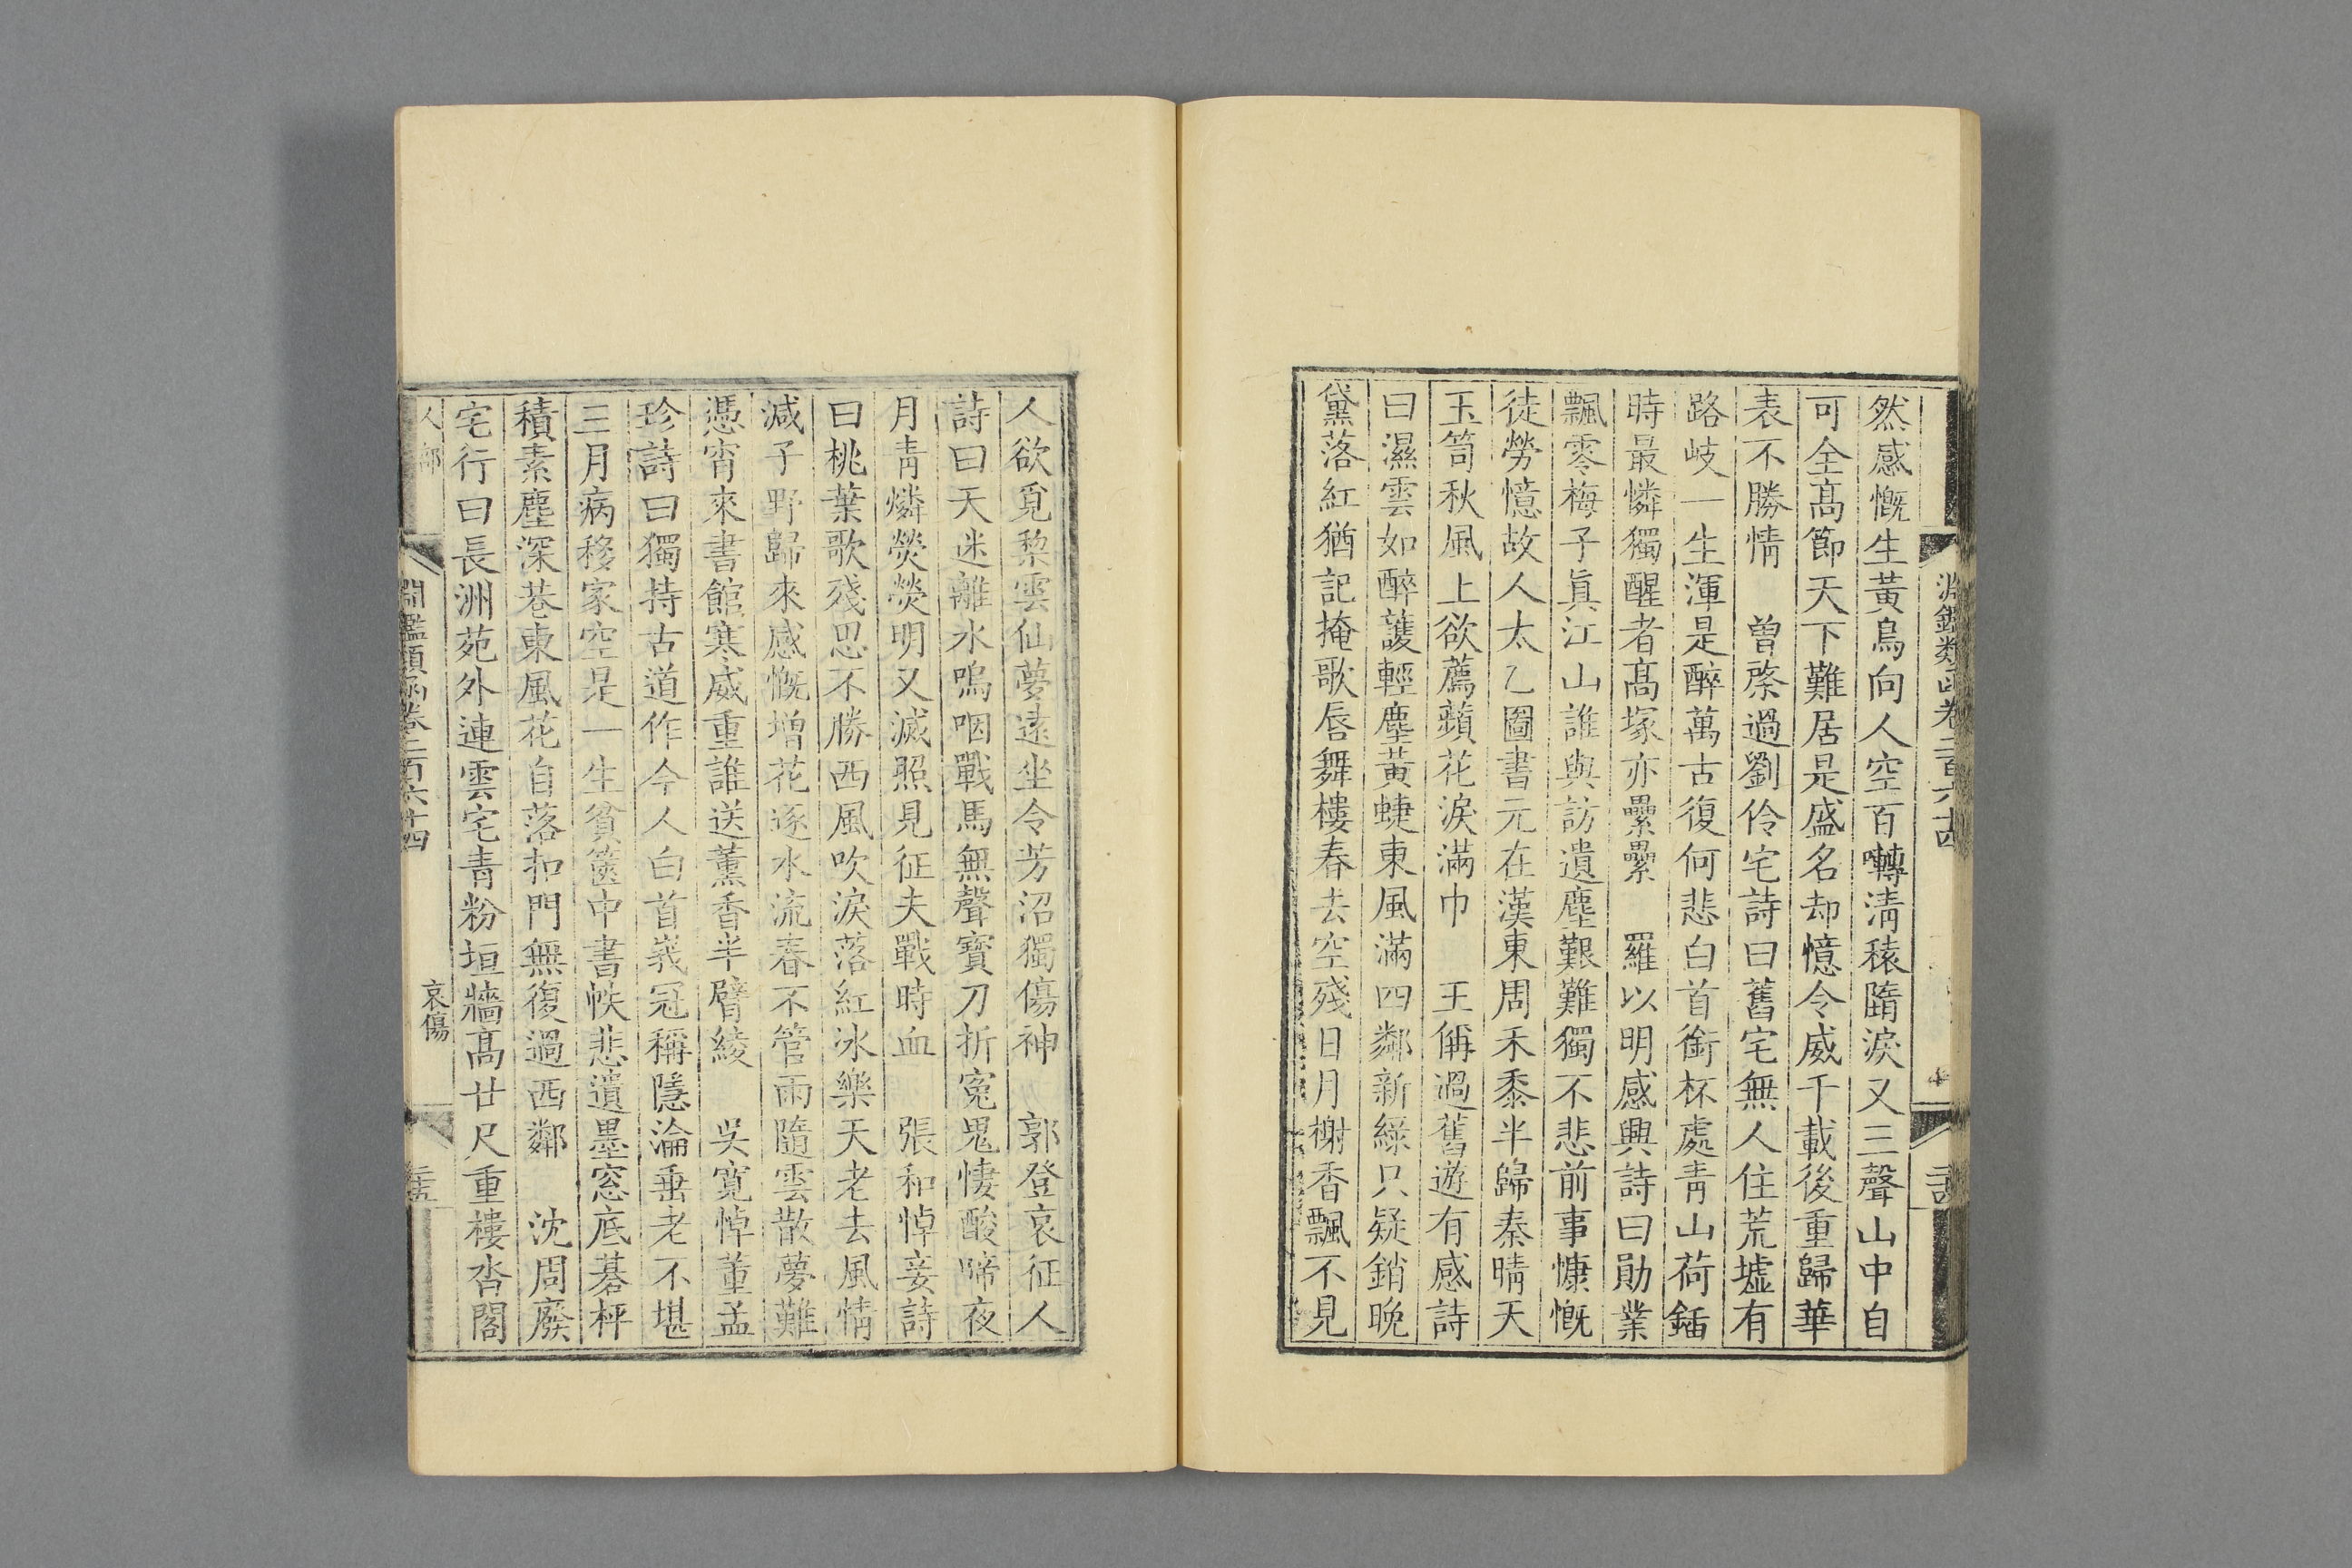 淵鑑類函卷二百六十四
然感慨生黃鳥向人空百囀淸猿隨淚又三聲山中自
可全高節天下難居是盛名却憶令威千載後重歸華
表不勝情　曾棨過劉伶宅詩曰舊宅無人住荒墟有
路岐一生渾是醉萬古復何悲白首銜杯處青山荷鍤
時最憐獨醒者高塚亦纍纍　羅以明感興詩曰勛業
飄零梅子眞江山誰與訪遺塵艱難獨不悲前事慷慨
徒勞憶故人太乙圖書元在漢東周禾黍半歸秦晴天
玉笥秋風上欲薦蘋花淚滿巾　王偁過舊遊有感詩
曰濕雲如醉護輕塵黃蜨東風滿四鄰新綠只疑銷晚
黛落紅猶記掩歌唇舞樓春去空殘日月榭香飄不見
人欲覓梨雲仙夢遠坐令芳沼獨傷神　郭登哀征人
詩曰天迷離水嗚咽戰馬無聲寶刀折寃鬼悽酸啼夜
月靑燐熒熒明又滅照見征夫戰時血　張和悼妾詩
曰桃葉歌殘思不勝西風吹淚落紅冰樂天老去風情
減子野歸來感慨增花逐水流春不管雨隨雲散夢難
憑宵來書館寒威重誰送薰香半臂綾　吳寬悼董孟
珍詩曰獨持古道作今人白首峩冠稱隱淪垂老不堪
三月病移家空是一生貧篋中書帙悲遺墨窓底碁枰
積素塵深巷東風花自落扣門無復過西鄰　沈周廢
宅行曰長洲苑外連雲宅靑粉垣牆高廿尺重樓沓閣
人部　淵鑑類函卷二百六十四　哀傷　二十五